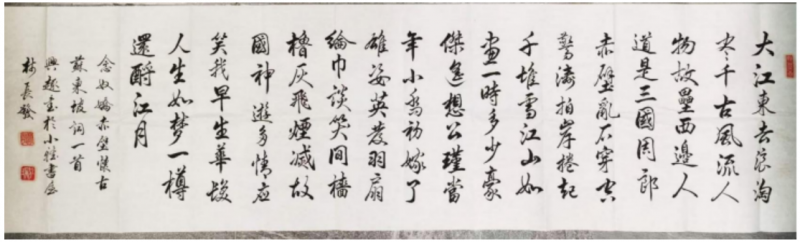 大江東去浪淘
尽千古風流人
物故壘西邊人
道是三國周郎
赤壁亂石穿空
驚濤拍岸捲起
千堆雪江山如
畫一時多少豪
傑遙想公瑾當
年小喬初嫁了
雄姿英發羽扇
綸巾談笑間檣
櫓灰飛煙滅故
國神遊多情应
笑我早生華髮
人生如梦一樽
還酹江月
念奴嬌赤壁懷古
蘇東坡詞一首